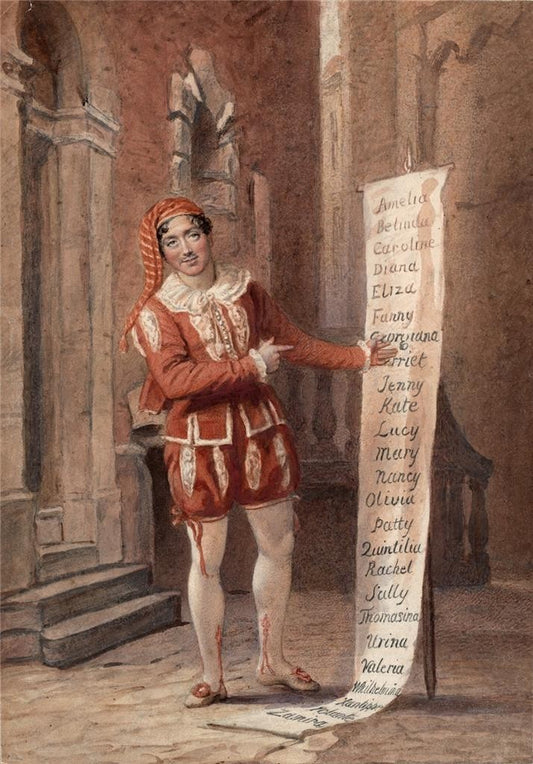 Amelia
Belinda
Caroline
Diana
Eliza
Fanny
Georgiana
rriet
Jenny
Kate
Lucy
Mary
Nancy
Olivia
Patty
Quintilia
Rachel
Sally
Thomasina
Urina
Valeria
Whilhelmina
Xantippe
Zamira